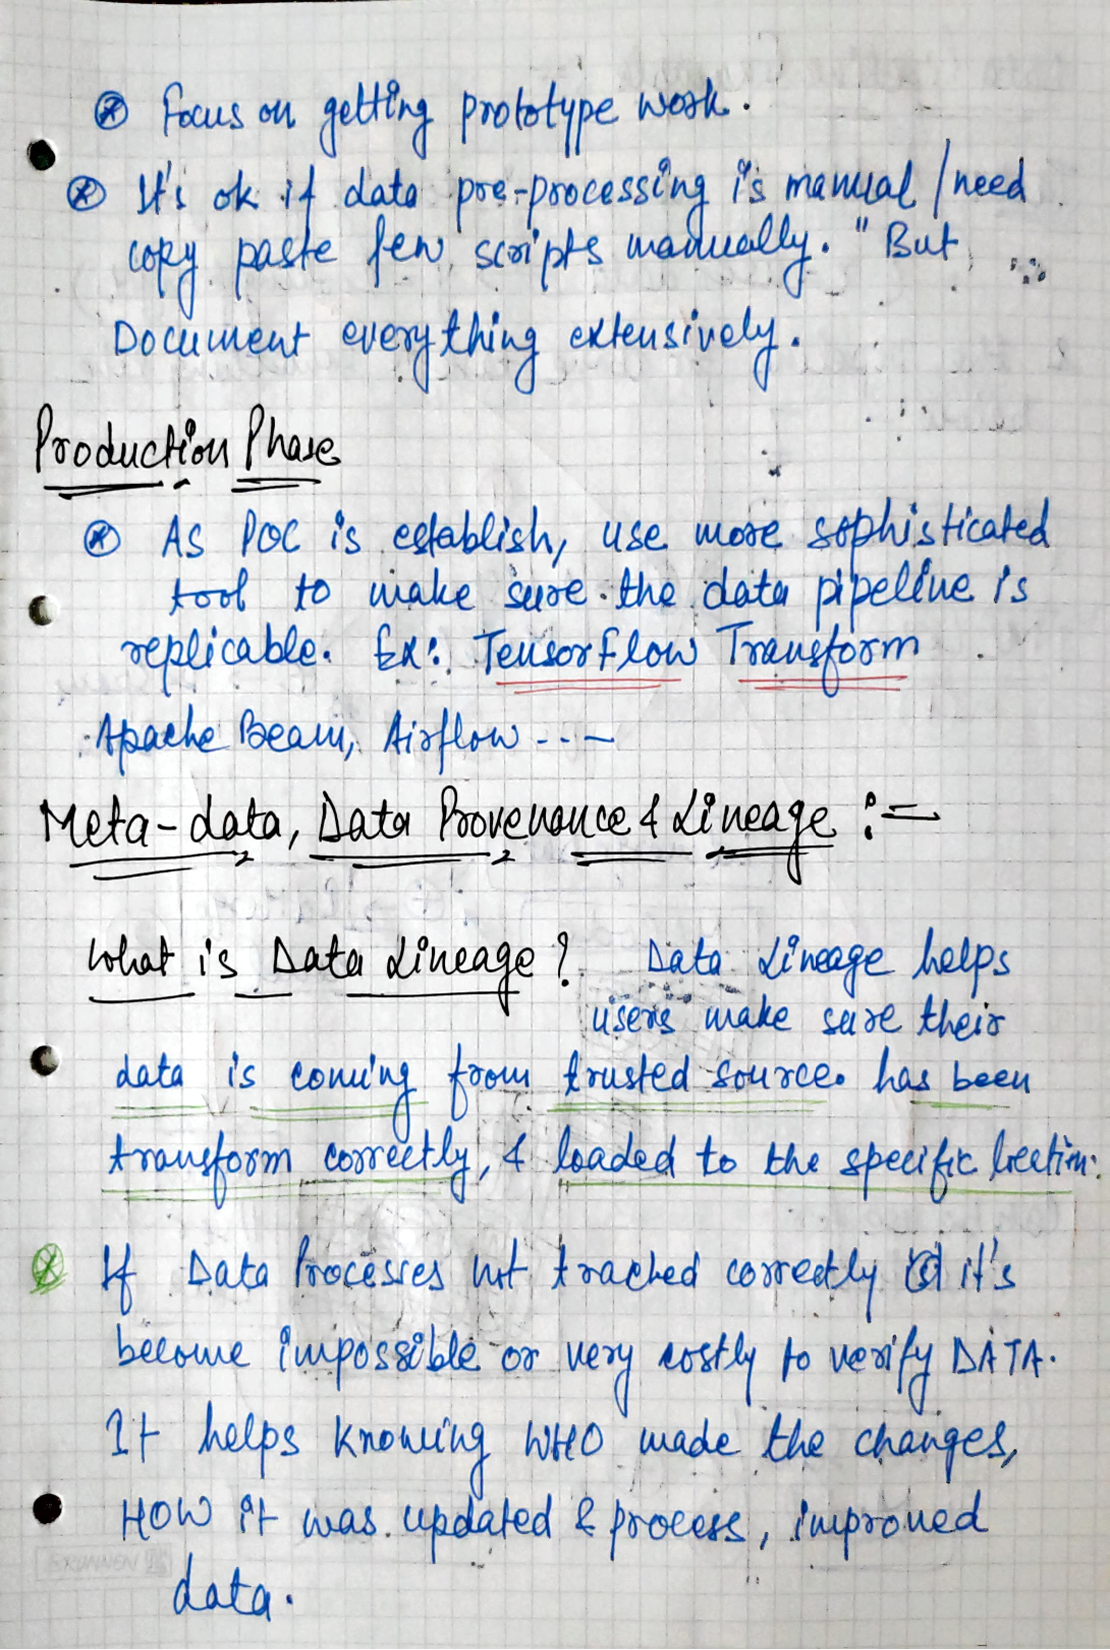 ⊛ Focus on getting prototype work.
⊛ It's ok if data pre-processing is manual /need
copy paste few scripts manually. "But
Document everything extensively.
Production Phase
⊛ As POC is establish, use more sophisticated
tool to make sure the data pipeline is
replicable. Ex: TensorFlow Transform
Apache Beam, Airflow ---
Meta-data, Data Provenance & Lineage :=
What is Data Lineage? Data Lineage helps
users make sure their
data is coming from trusted source. has been
transform correctly, & loaded to the specific loction.
⊗ If Data Processes not trached correctly it's
become impossible or very costly to verify DATA.
It helps knowing WHO made the changes,
HOW it was updated & process, improved
data.